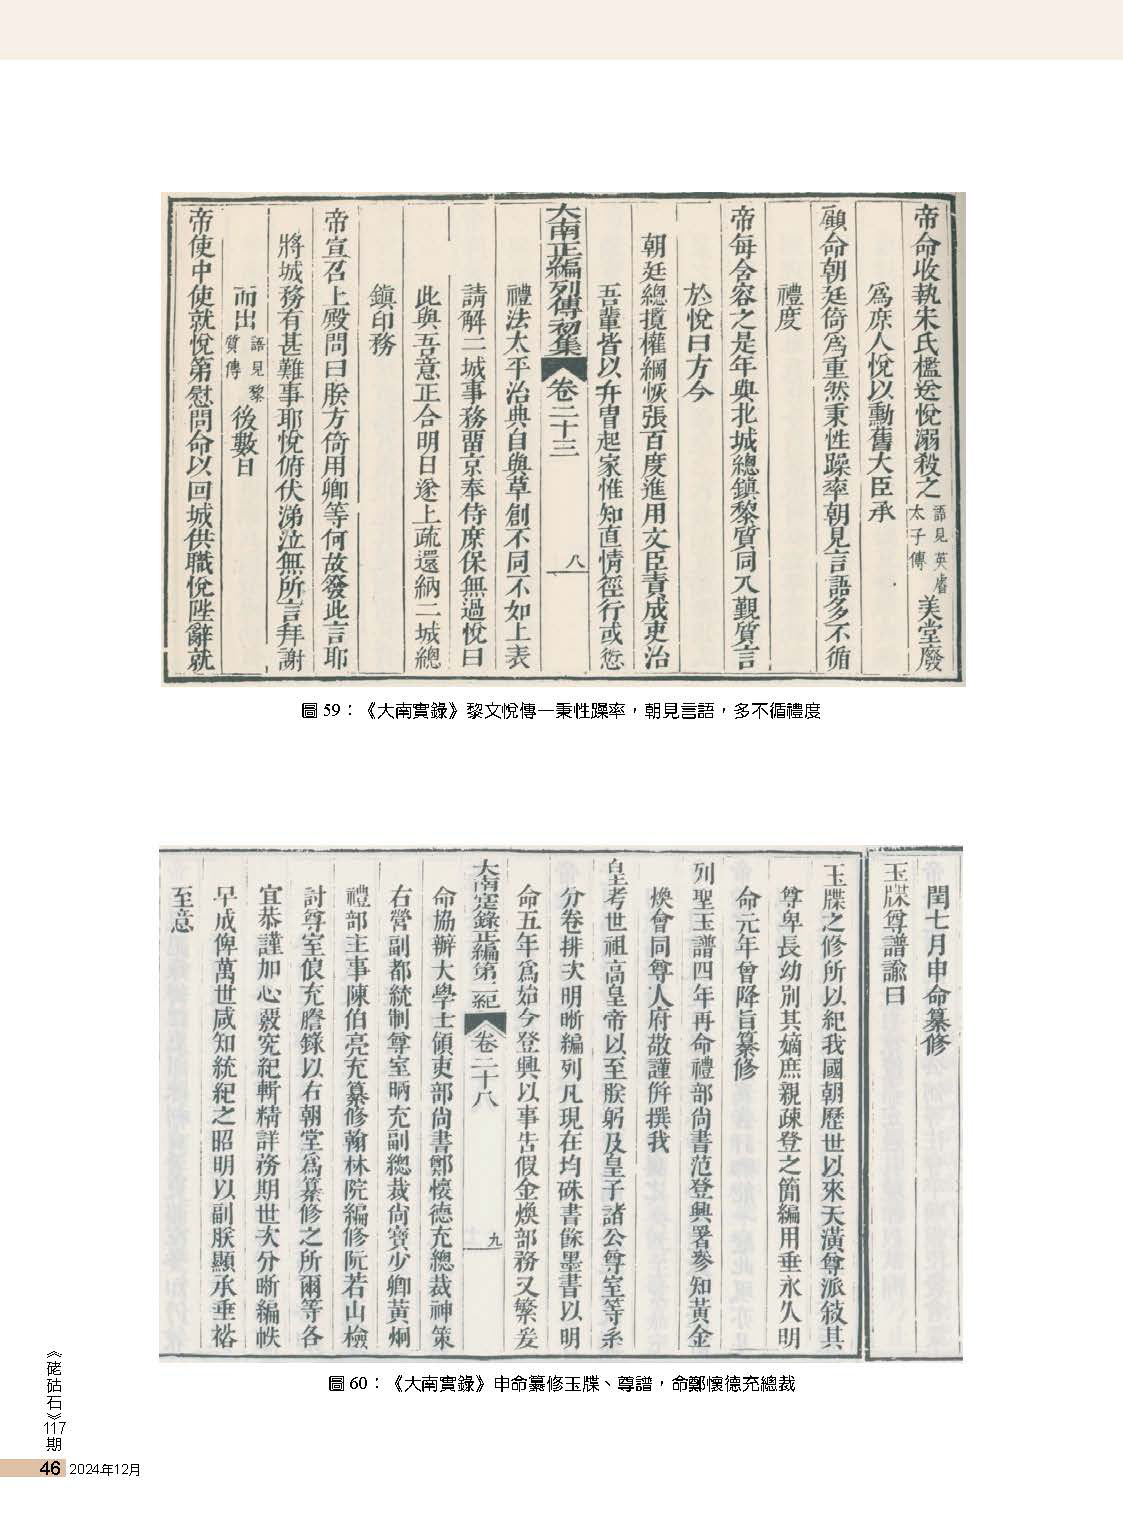 帝命收執宋氏檻送悅溺殺之語見英睿太子傳美堂廢
為庶人悅以勳舊大臣承
顧命朝廷倚為重然秉性躁率朝見言語多不循
禮度
帝每含容之是年與北城總鎮黎質同入覲質言
於悅曰方今
朝廷總攬權綱恢張百度進用文臣責成吏治
吾輩皆以弁冑起家惟知直情徑行或愆
大南正編列傳初集 卷二十三 八
禮法太平治典自與草創不同不如上表
請解二城事務畱京奉侍庶保無過悅曰
此與吾意正合明日遂上疏還納二城總
鎮印務
帝宣召上殿問曰朕方倚用卿等何故發此言耶
將城務有甚難事耶悅俯伏涕泣無所言拜謝
而出語見黎質傳後數日
帝使中使就悅第慰問命以回城供職悅陛辭就
圖 59：《大南實錄》黎文悅傳—秉性躁率，朝見言語，多不循禮度
閏七月申命纂修
玉牒尊譜諭曰
玉牒之修所以紀我國朝歷世以來天潢尊派敍其
尊卑長幼別其嫡庶親疎登之簡編用垂永久明
命元年曾降旨纂修
列聖玉譜四年再命禮部尙書范登興署參知黃金
煥會同尊人府敬謹併撰我
皇考世祖高皇帝以至朕躬及皇子諸公尊室等系
分卷排次明晰編列凡現在均硃書餘墨書以明
命五年爲始今登興以事告假金煥部務又繁爰
大南寔錄正編第二紀 卷二十八 九
命協辦大學士領吏部尙書鄭懷德充總裁神策
右營副都統制尊室昞充副總裁尙寶少卿黃炯
禮部主事陳伯亮充纂修翰林院編修阮若山檢
討尊室俍充謄錄以右朝堂爲纂修之所爾等各
宜恭謹加心覈究紀載精詳務期世次分晰編帙
早成俾萬世咸知統紀之昭明以副朕顯承垂裕
至意
圖 60：《大南實錄》申命纂修玉牒、尊譜，命鄭懷德充總裁
《硓𥑮石》117期
46 2024年12月